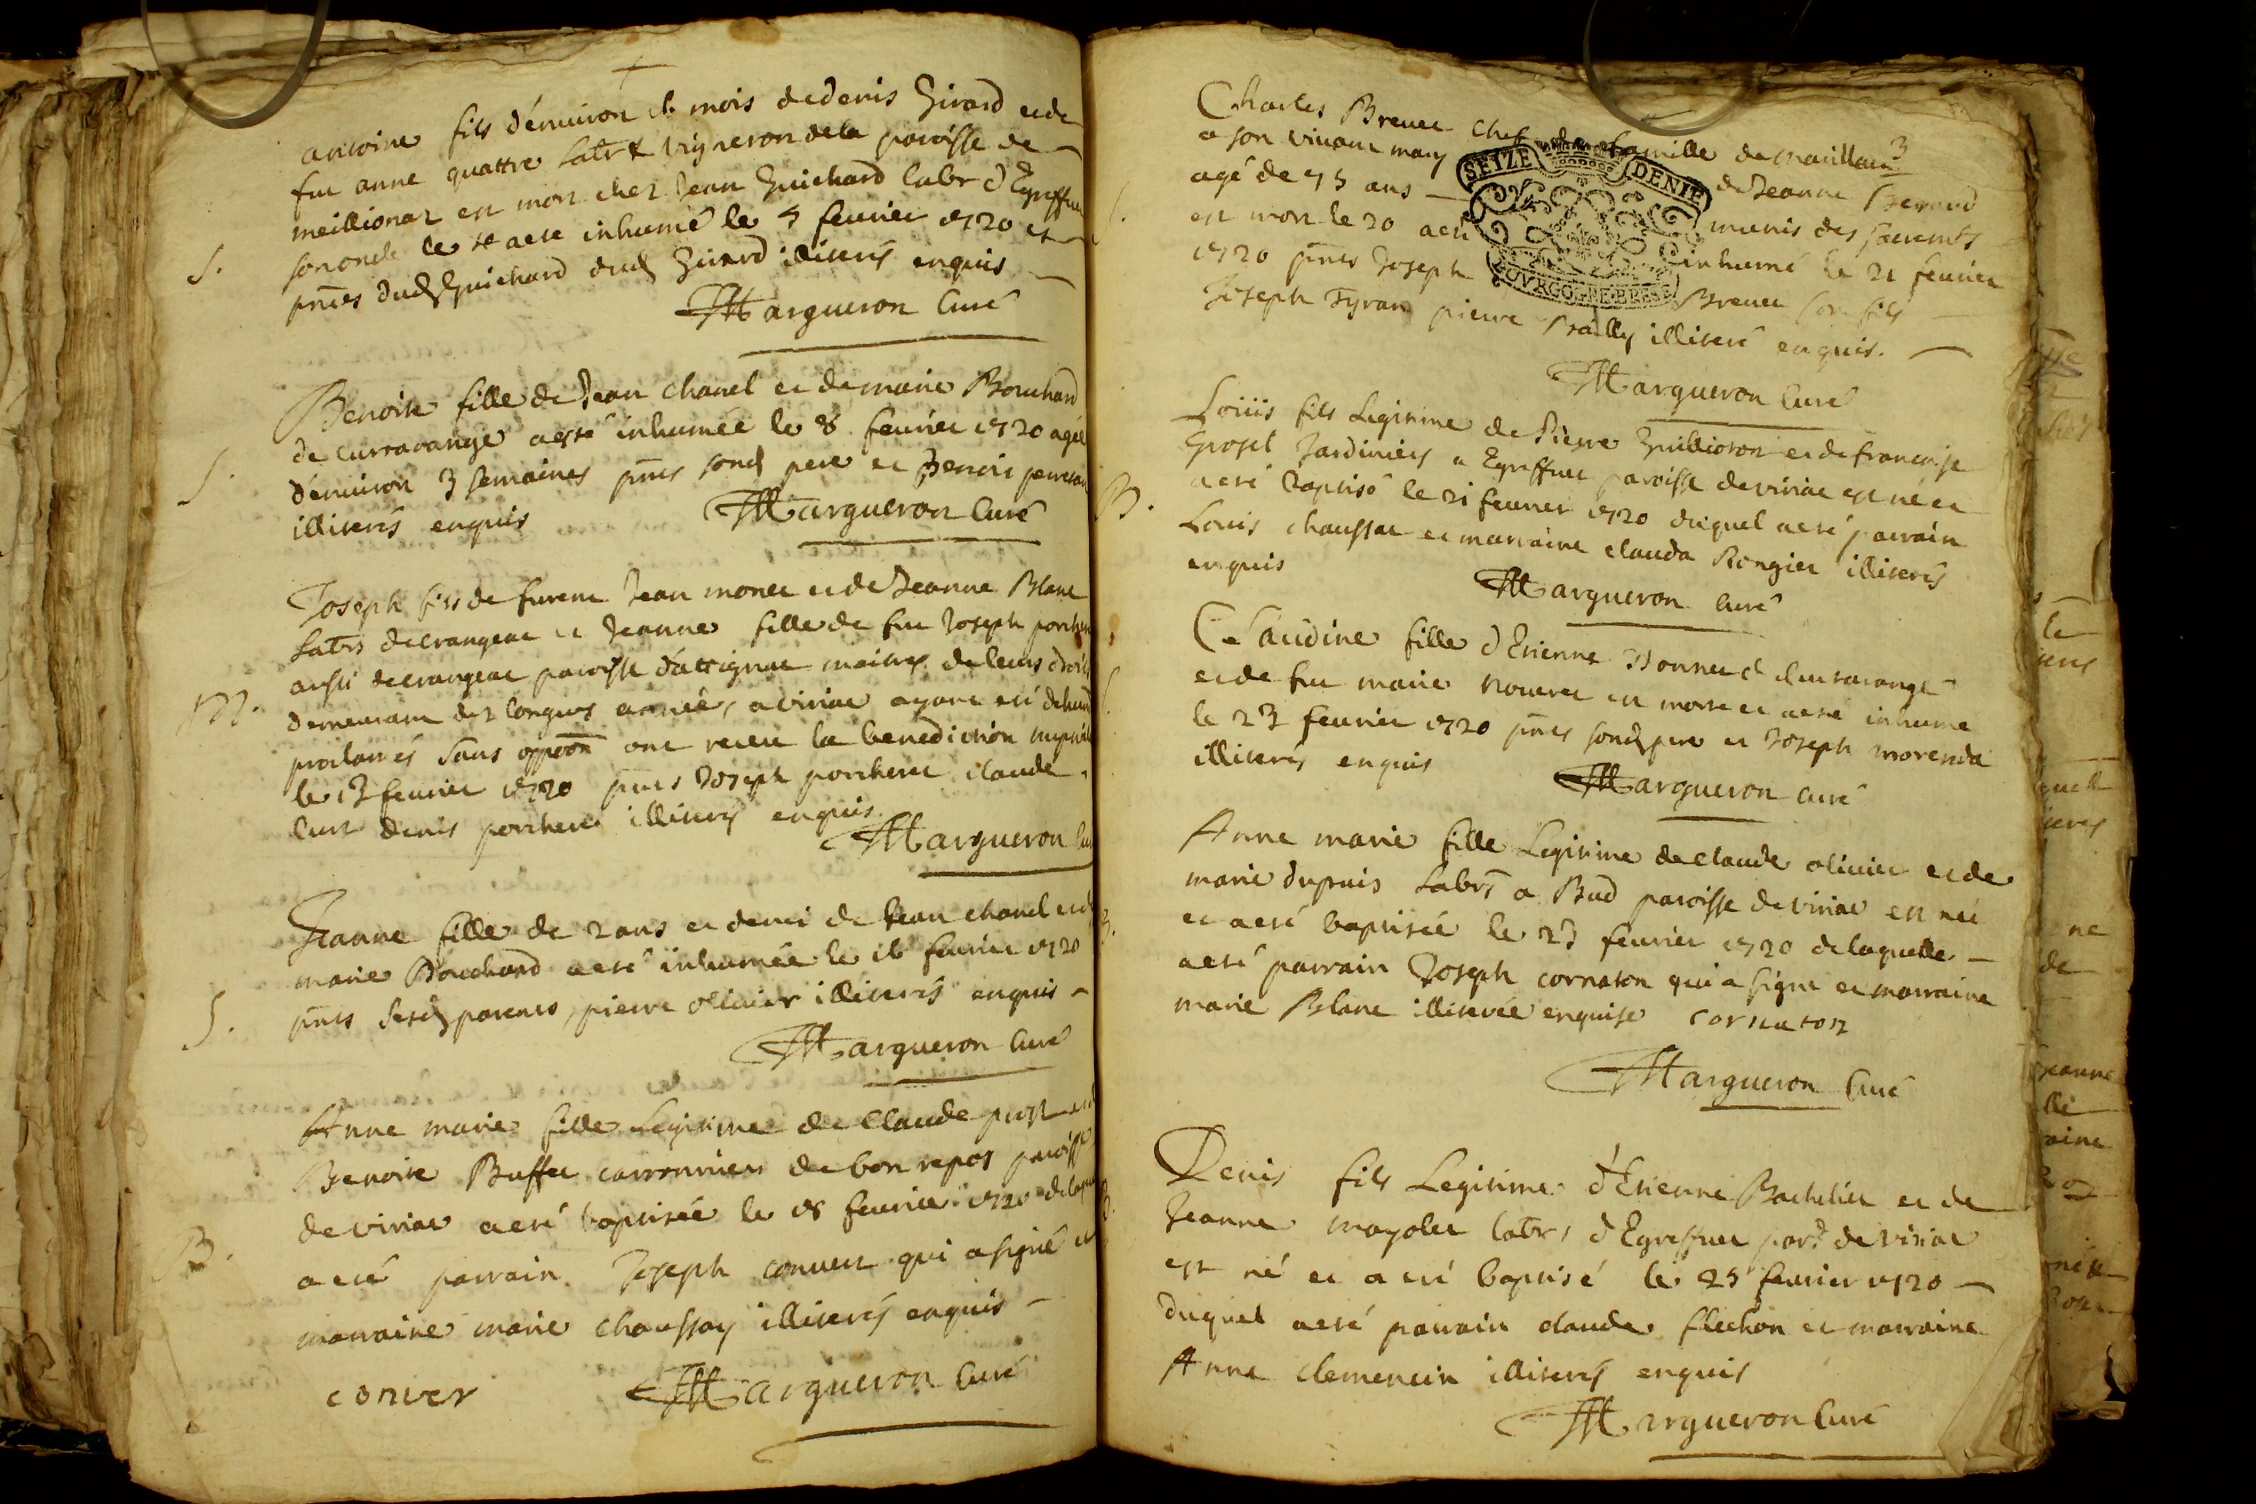 antoine fils d'énuiron 18 mois de denis Girard et de
fue anne quattre labr & vigneron de la paroisse de
meillionaz est mort chez Jean Guichard labr d'Egreffue
son oncle le et a eté inhumé le 5 feurier 1720 et
pnts dud Guichard dud Girard illiterés enquis
S.
Margueron Curé
Benoite fille de Jean chanel et de marie Bouchard
de curtarange a esté inhumée le 8 feurier 1720 agée
d'énuiron 3 semaines pnts sond pere et Benoit
illiterés enquis
S.
Margueron Curé
Joseph fils de furent Jean monet et de Jeanne Blanc
labrs de crangeac et Jeanne fille de fue Joseph porcheret
aussi de crangeac paroisse d'attignac maitres de leurs droits
demeurant dez longues année, a viriac ayant eté
proclamés sans oppoōn ont receu la benediction nuptiale
le 13 feurier 1720 pnts Joseph porcheret claude
denis porcheret illiterés enquis
M.
Margueron
Jeanne fille de 2 ans et demi de Jean chanel et de
marie Bouchard a eté inhumée le 16 feurier 1720
pnts sesd parents, pierre oliuier illiterés enquis
S.
Margueron Curé
Anne marie fille Legitime de Claude et
Benoite Buffet de bon repos paroisse
de viriac a eté baptisée le 18 feurier 1720 de laquelle
a eté parrain Joseph conuert qui a signé et
marraine marie chaussay illiterés enquis
B.
conver
Margueron Curé
3
Charles Breuet chef de famille de
a son viuant mary de Jeanne
agé de 75 ans munis des sacremts
est mort le 20 a eté inhumé le 21 feurier
1720 pnts Joseph Breuet son fils
Joseph Tyran pierre illiteré enquis.
SEIZE DENIE
BOVRGOGNE BRESSE
Margueron Curé
Loüis fils Legitime de Pierre Guillioton et de francoise
Grosel Jardiniers a Egreffuet paroisse de viriac est né et
a eté baptisé le 21 feurier 1720 duquel a eté parrain
Louis chaussat et marraine clauda Rongier illiterés
enquis
B.
Margueron Curé
Claudine fille d'Etienne Donnet d
et de fue marie nouvet est morte et a eté inhumé
le 23 feurier 1720 pnts sond pere et Joseph morenda
illiterés enquis
Margueron Curé
Anne marie fille Legitime de claude oliuier et de
marie dupuis labrs a Bud paroisse de viriac est née
et a eté baptisée le 23 feurier 1720 de laquelle
a eté parrain Joseph cornaton qui a signé et marraine
marie Blanc illiterée enquise cornaton
Margueron Curé
Denis fils Legitime d'Etienne Bachelier et de
Jeanne mayolet labrs d'Egreffuet par.d de viriac
est né et a eté baptisé le 25 feurier 1720
duquel a eté parrain claude flechon et marraine
Anne clemencin illiterés enquis
Margueron Curé